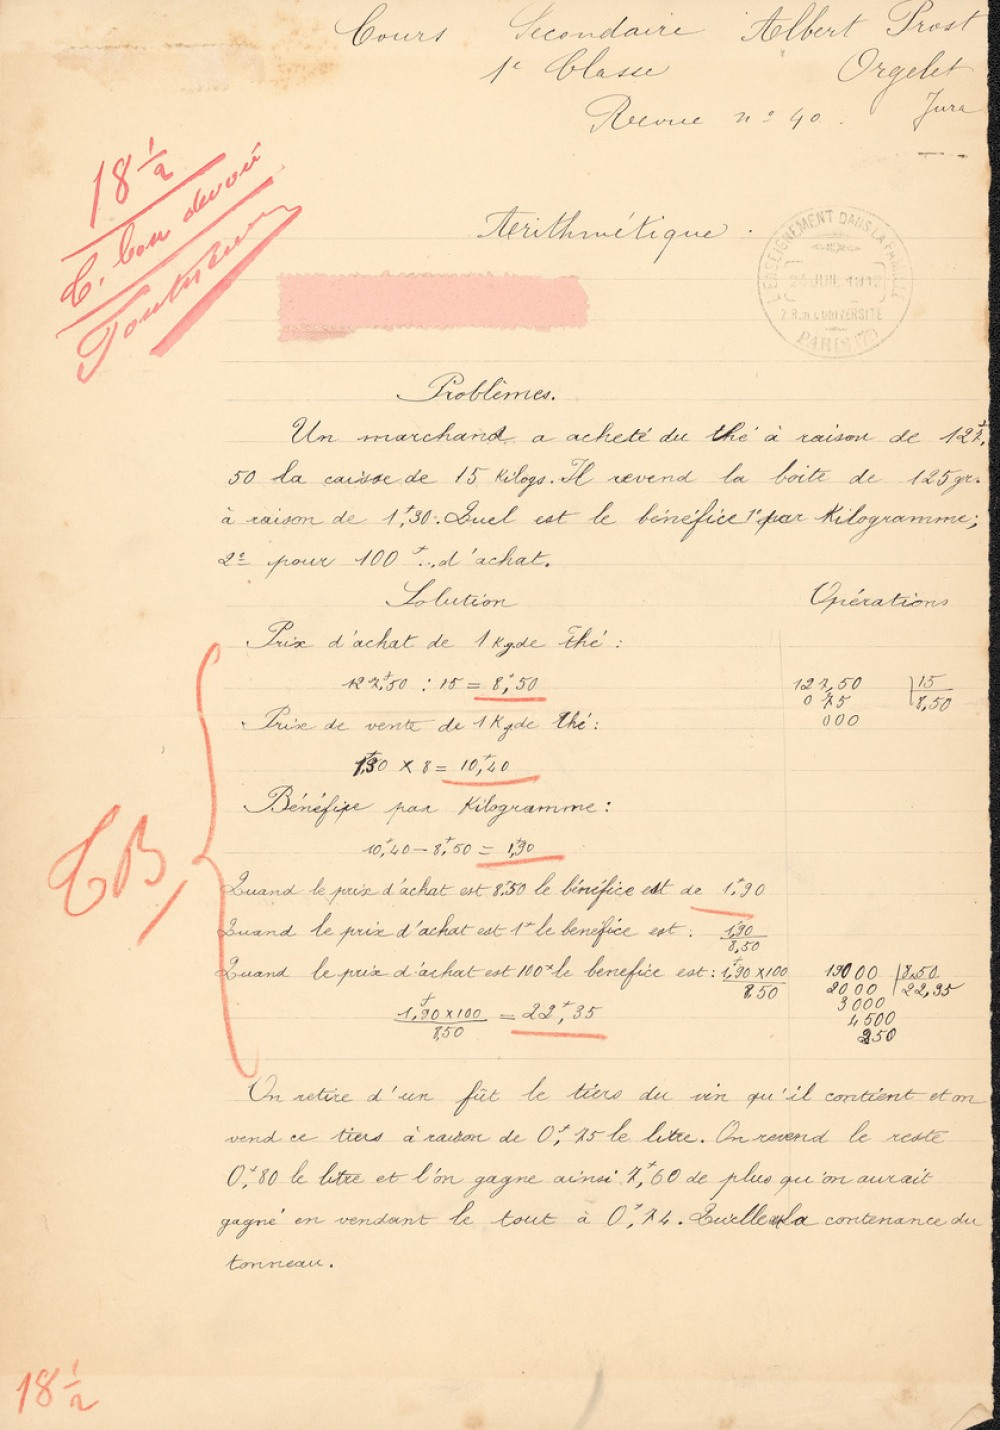 Cours Secondaire Albert Prost
1e Classe Orgelet
Revue nº 40. Jura
18 1/2
T. bon devoir
Arithmétique.
L'ENSEIGNEMENT DANS LA FAMILLE
24 JUIL 1912
2. R. de L'UNIVERSITÉ
PARIS (7e)
Problèmes.
Un marchand a acheté du thé à raison de 127f,
50 la caisse de 15 Kilogs. Il revend la boite de 125gr.
à raison de 1f,30. Quel est le bénéfice 1º par Kilogramme;
2º pour 100f... d'achat.
Solution Opérations
Prix d'achat de 1 Kg de thé :
127f,50 : 15 = 8f,50 127,50 | 15
0 75 8,50
Prix de vente de 1 Kg de thé : 000
1f,30 x 8 = 10f,40
Bénéfice par Kilogramme :
10f,40 – 8f,50 = 1f,90
TB
Quand le prix d'achat est 8f50 le bénéfice est de 1f,90
Quand le prix d'achat est 1f le benefice est : 1f,90/8,50
Quand le prix d'achat est 100f le benefice est : 1f,90 x 100/850 19000 | 8,50
2000 22,35
3000
1f,90 x 100/8,50 = 22f,35 4500
250
On retire d'un fût le tiers du vin qu'il contient et on
vend ce tiers à raison de 0f,75 le litre. On revend le reste
0f,80 le litre et l'on gagne ainsi 7f,60 de plus qu'on aurait
gagné en vendant le tout à 0f,74. Quelle est la contenance du
tonneau.
18 1/2